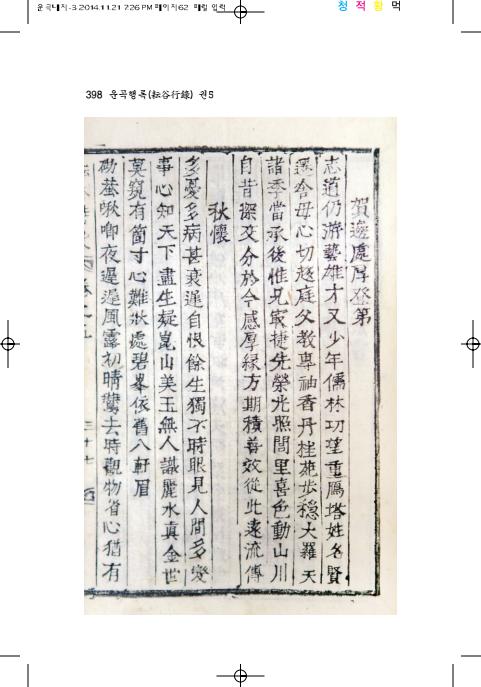 운곡내지-3 2014.11.21 7:26 PM 페이지62
청 적 황 먹
398 운곡행록(耘谷行錄) 권5
賀邊處厚登第
志道仍游藝雄才又少年儒林功望重鴈塔姓名賢
選舍母心切趍庭父敎專袖香丹桂苑步穩大羅天
諸季當承後惟兄㝡捷先榮光照閭里喜色動山川
自昔深交分於今感厚緣方期積善效從此遠流傳
秋懷
多憂多病甚衰遲自恨餘生獨不時眼見人間多變
事心知天下盡生疑崑山美玉無人識麗水真金世
莫窺有箇寸心難狀處碧峯依舊入軒眉
砌蛩啾喞夜遲遲風露初晴鴈去時觀物省心猶有
三十七